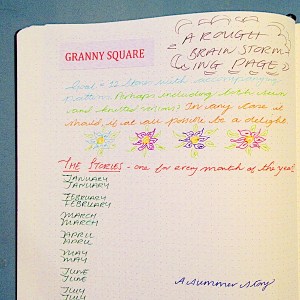 GRANNY SQUARE
A ROUGH
BRAIN STORM
ING PAGE
Level - 12 with
pattern. Perhaps including both sewn
and knitted In any case it
should if at all possible be a delight.
THE STORIES - one for every month of the year.
JANUARY
JANUARY
FEBRUARY
FEBRUARY
MARCH
MARCH
APRIL
APRIL
MAY
MAY
JUNE
JUNE
A summer story
JULY
JULY